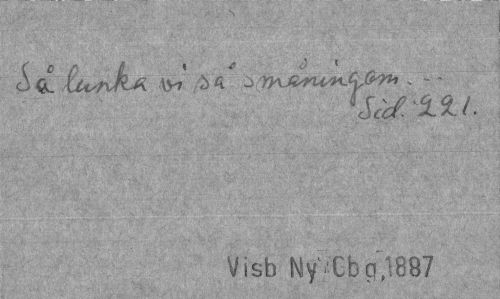 Så lunka vi så småningom...
Sid. 221.
Visb Ny Cbg, 1887